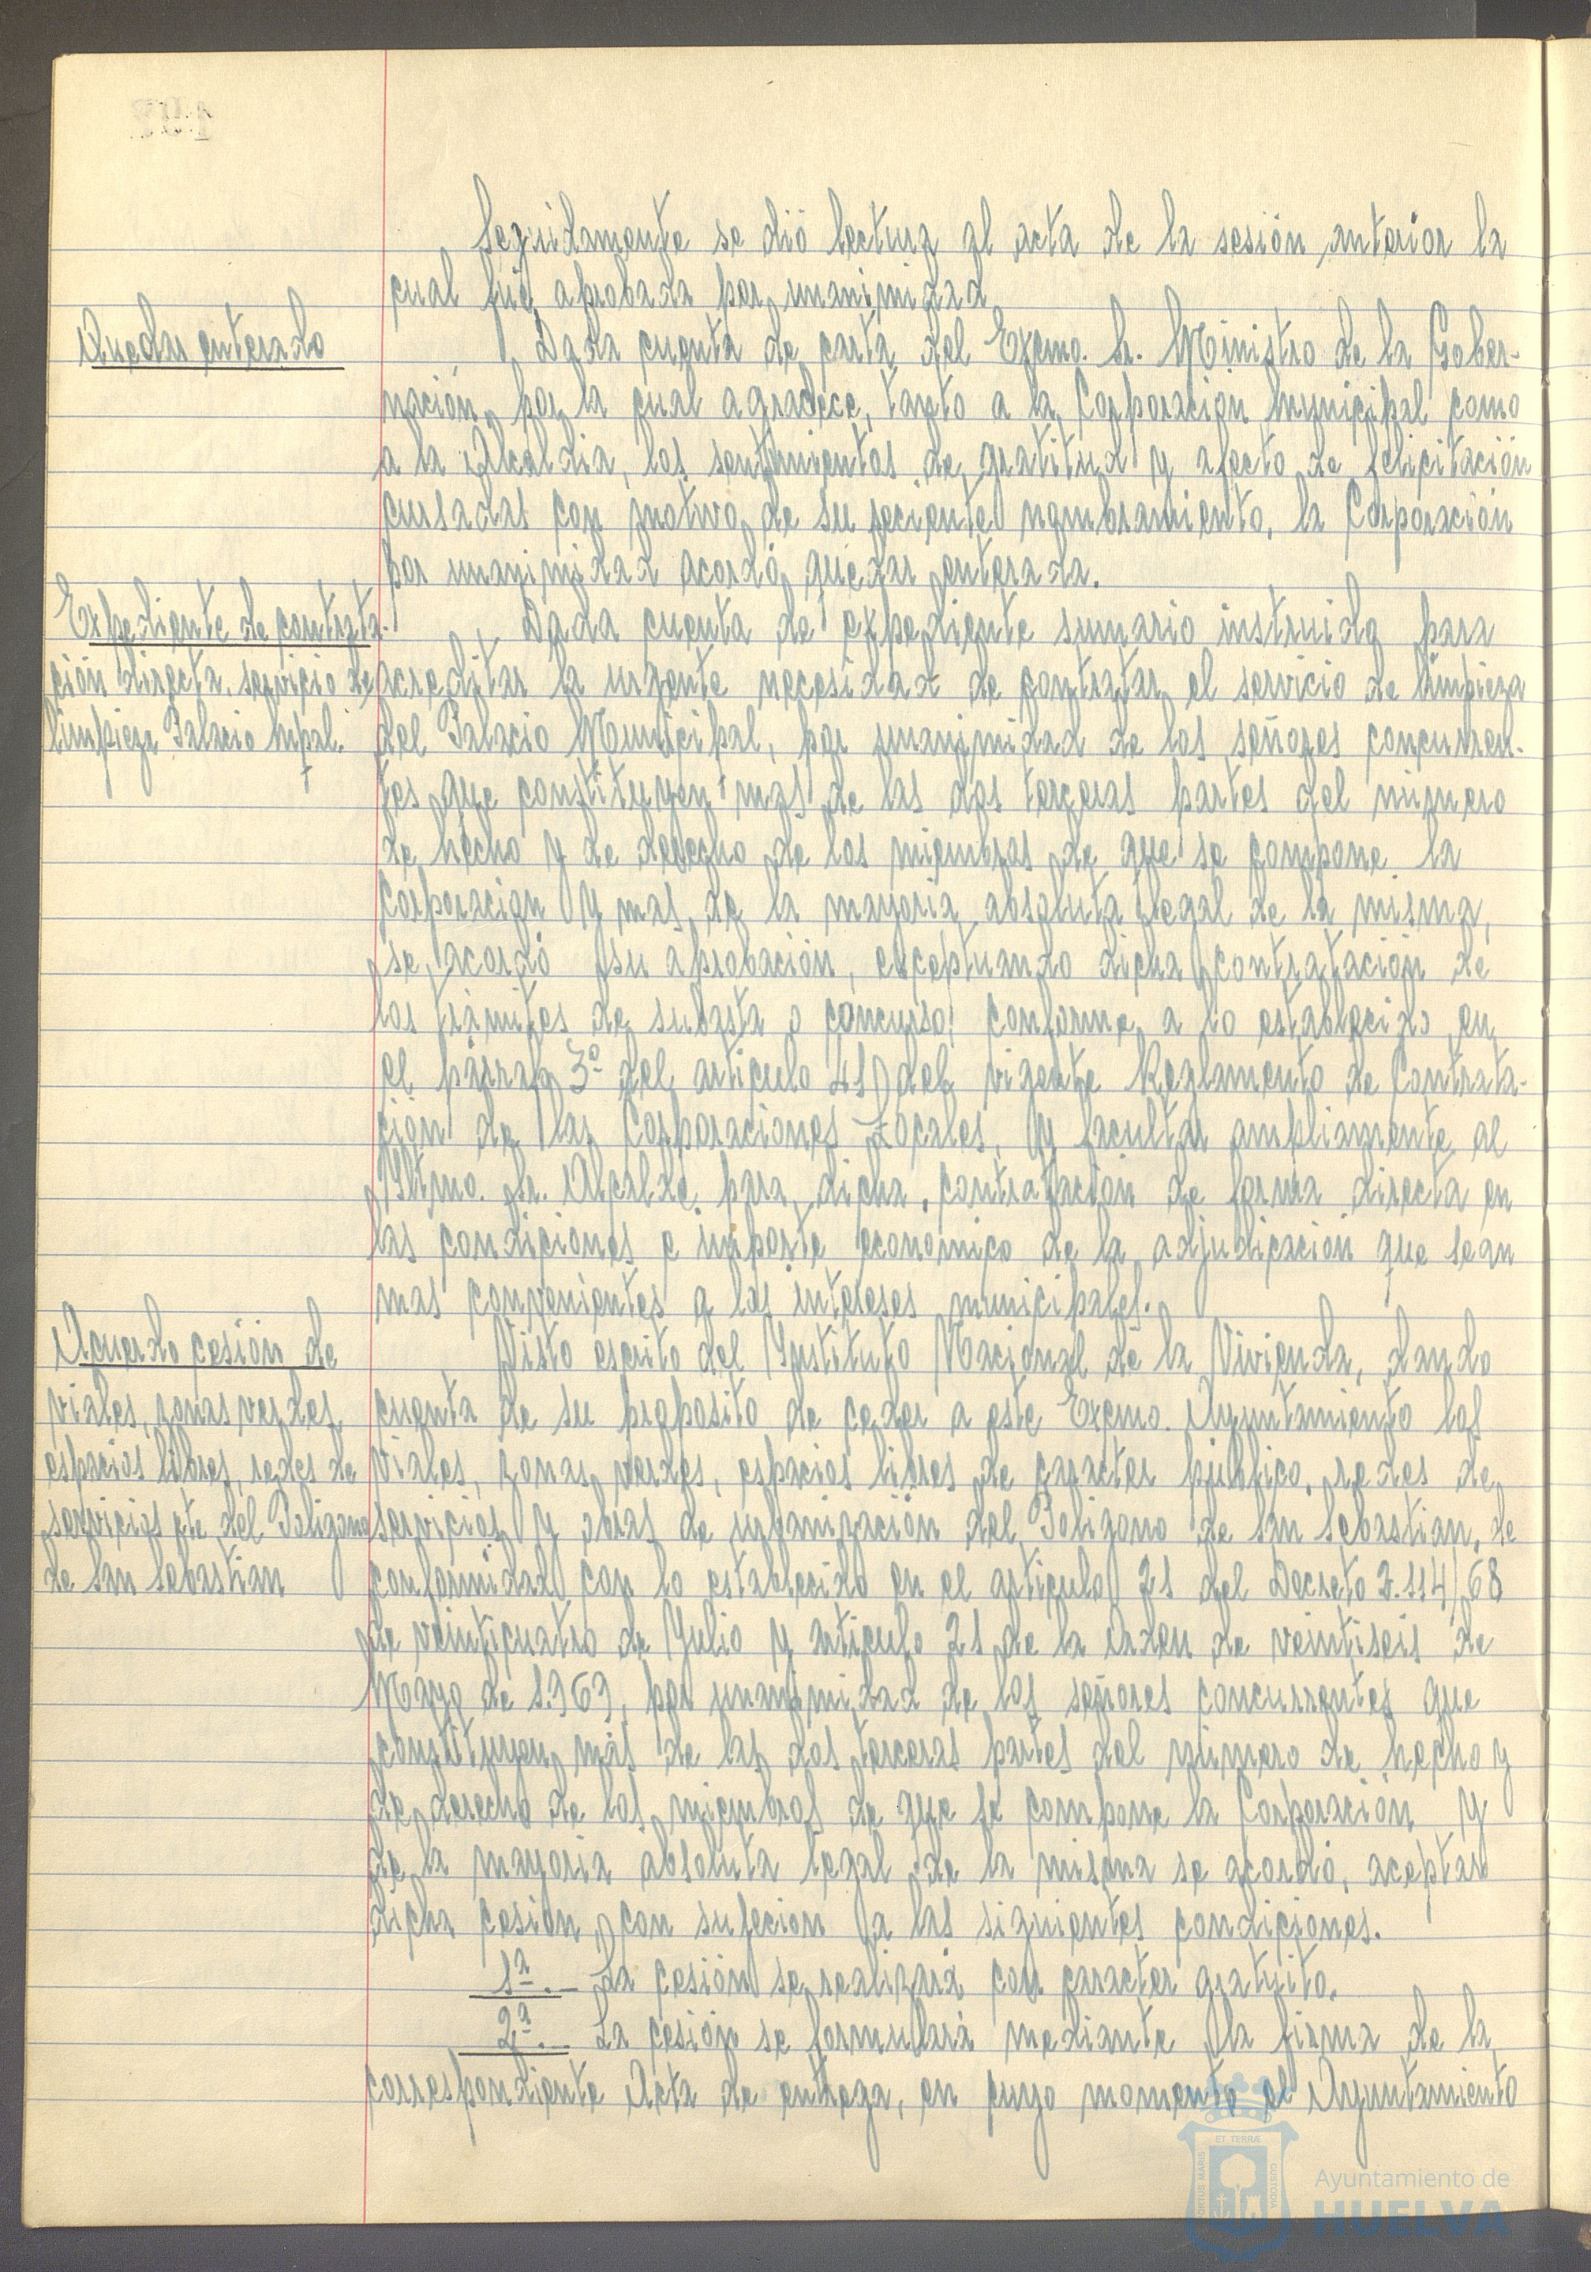 Seguidamente se dió lectura al acta de la sesión anterior la
cual fué aprobada por unanimidad.
Quedar enterado
Dada cuenta de carta del Excmo. Sr. Ministro de la Gober-
nación, por la cual agradece, tanto a la Corporación municipal como
a la Alcaldia, los sentimientos de gratitud y afecto de felicitación
cursadas con motivo de su reciente nombramiento, la Corporación
por unanimidad acordó quedar enterada.
Expediente de contrata-
ción directa, servicio de
limpieza Palacio Mpal.
Dada cuenta de expediente sumario instruido para
acreditar la urgente necesidad de contratar el servicio de limpieza
del Palacio Municipal, por unanimidad de los señores concurren-
tes que constituyen mas de las dos terceras partes del número
de hecho y de derecho de los miembros de que se compone la
Corporación y mas de la mayoria absoluta legal de la misma,
se acordó su aprobación, exceptuando dicha contratación de
los trámites de subasta o concurso, conforme a lo establecido en
el párrafo 3º del articulo 41 del vigente Reglamento de Contrata-
ción de las Corporaciones Locales, y facultar ampliamente al
Iltmo. Sr. Alcalde para dicha contratación de forma directa en
las condiciones e importe economico de la adjudicación que sean
mas convenientes a los intereses municipales.
Acuerdo cesión de
viales, zonas verdes,
espacios libres, redes de
servicios etc del Poligono
de San Sebastian
Visto escrito del Instituto Nacional de la Vivienda, dando
cuenta de su proposito de ceder a este Excmo. Ayuntamiento los
viales, zonas verdes, espacios libres de caracter público, redes de
servicios y obras de urbanización del Poligono de San Sebastian, de
conformidad con lo establecido en el articulo 21 del Decreto 2.114/68
de veinticuatro de Julio y articulo 21 de la Orden de veintiseis de
Mayo de 1.969, por unanimidad de los señores concurrentes que
constituyen más de las dos terceras partes del número de hecho y
de derecho de los miembros de que se compone la Corporación y
de la mayoria absoluta legal de la misma se acordó, aceptar
dicha cesión con sujecion a las siguientes condiciones.
1ª.- La cesión se realizará con caracter gratuito.
2ª.- La cesión se formulará mediante la firma de la
correspondiente Acta de entrega, en cuyo momento el Ayuntamiento
PORTUS MARIS ET TERRÆ CUSTODIA
Ayuntamiento de
HUELVA